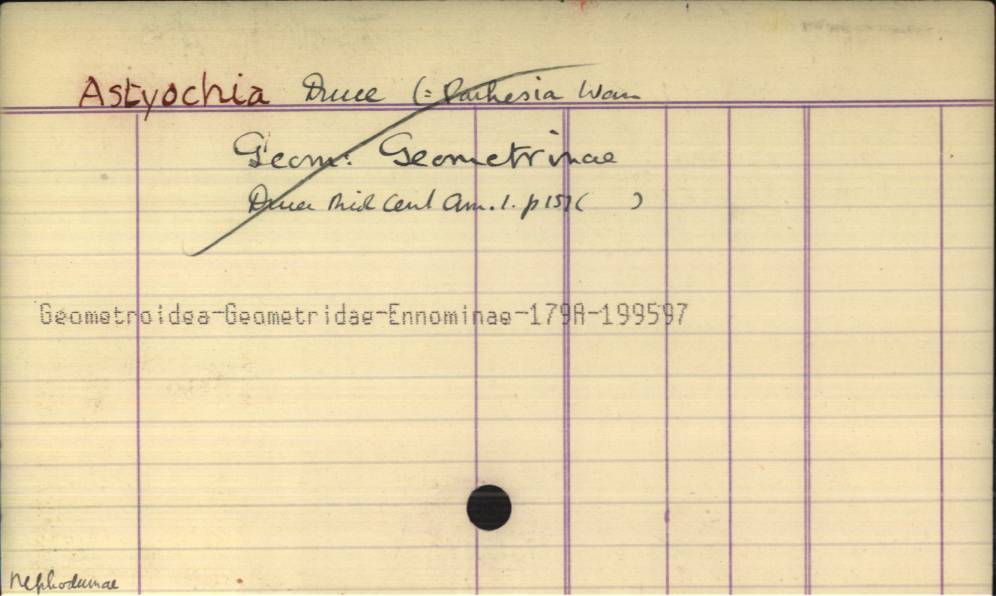 Astyochia Druce (= Warn
Geom: Geometrinae
Druce Biol Cent Am. 1. p 151 ( )
Geometroidea-Geometridae-Ennominae-179A-199597
Nephodiinae